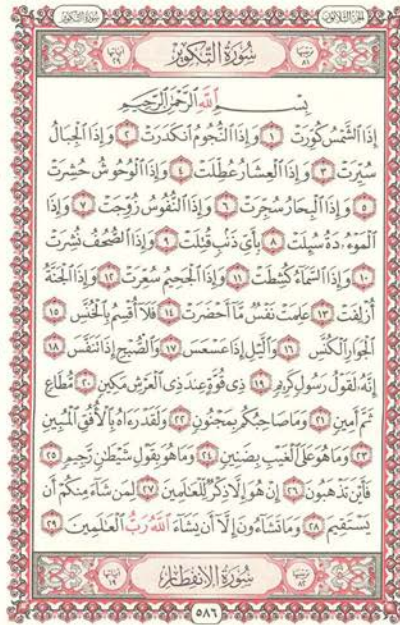 الجزء الثلاثون سورة التكوير
ترتيبها ٨١ سُورَةُ التَّكْوِيرِ آياتها ٢٩
بِسْمِ اللَّهِ الرَّحْمَٰنِ الرَّحِيمِ
إِذَا الشَّمْسُ كُوِّرَتْ ١ وَإِذَا النُّجُومُ انكَدَرَتْ ٢ وَإِذَا الْجِبَالُ
سُيِّرَتْ ٣ وَإِذَا الْعِشَارُ عُطِّلَتْ ٤ وَإِذَا الْوُحُوشُ حُشِرَتْ
٥ وَإِذَا الْبِحَارُ سُجِّرَتْ ٦ وَإِذَا النُّفُوسُ زُوِّجَتْ ٧ وَإِذَا
الْمَوْءُدَةُ سُئِلَتْ ٨ بِأَيِّ ذَنبٍ قُتِلَتْ ٩ وَإِذَا الصُّحُفُ نُشِرَتْ
١٠ وَإِذَا السَّمَاءُ كُشِطَتْ ١١ وَإِذَا الْجَحِيمُ سُعِّرَتْ ١٢ وَإِذَا الْجَنَّةُ
أُزْلِفَتْ ١٣ عَلِمَتْ نَفْسٌ مَّا أَحْضَرَتْ ١٤ فَلَا أُقْسِمُ بِالْخُنَّسِ ١٥
الْجَوَارِ الْكُنَّسِ ١٦ وَاللَّيْلِ إِذَا عَسْعَسَ ١٧ وَالصُّبْحِ إِذَا تَنَفَّسَ ١٨
إِنَّهُ لَقَوْلُ رَسُولٍ كَرِيمٍ ١٩ ذِي قُوَّةٍ عِندَ ذِي الْعَرْشِ مَكِينٍ ٢٠ مُّطَاعٍ
ثَمَّ أَمِينٍ ٢١ وَمَا صَاحِبُكُم بِمَجْنُونٍ ٢٢ وَلَقَدْ رَءَاهُ بِالْأُفُقِ الْمُبِينِ
٢٣ وَمَا هُوَ عَلَى الْغَيْبِ بِضَنِينٍ ٢٤ وَمَا هُوَ بِقَوْلِ شَيْطَٰنٍ رَّجِيمٍ ٢٥
فَأَيْنَ تَذْهَبُونَ ٢٦ إِنْ هُوَ إِلَّا ذِكْرٌ لِّلْعَالَمِينَ ٢٧ لِمَن شَاءَ مِنكُمْ أَن
يَسْتَقِيمَ ٢٨ وَمَا تَشَاءُونَ إِلَّا أَن يَشَاءَ اللَّهُ رَبُّ الْعَٰلَمِينَ ٢٩
ترتيبها ٨٢ سُورَةُ الِانفِطَارِ آياتها ١٩
٥٨٦